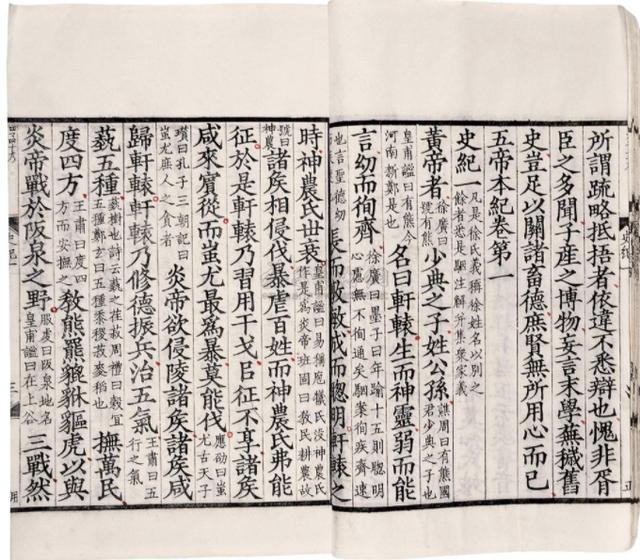 所謂疏略抵捂者依違不悉辯也愧非胥
臣之多聞子産之博物妄言末學蕪穢舊
史豈足以關諸畜德庶賢無所用心而已
五帝本紀卷第一
史紀一凡是徐氏義稱徐姓名以別之餘者悉是駰注解并集衆家義
黃帝者徐廣曰號有熊少典之子姓公孫譙周曰有熊國君少典之子也
皇甫謐曰有熊今河南新鄭是也名曰軒轅生而神靈弱而能
言幼而徇齊徐廣曰墨子曰年踰十五則聰明心慮無不徇通矣駰案徇疾齊速
也言聖德幼長而敦敏成而聰明軒轅之
時神農氏世衰皇甫謐曰易稱庖犧氏沒神農氏作是爲炎帝班固曰教民耕農故
號曰神農諸矦相侵伐暴虐百姓而神農氏弗能
征於是軒轅乃習用干戈㠯征不享諸矦
咸來賓從而蚩尤最爲暴莫能伐應劭曰蚩尤古天子
瓚曰孔子三朝記曰蚩尤庶人之貪者炎帝欲侵陵諸矦諸矦咸
歸軒轅軒轅乃修德振兵治五氣王肅曰五行之氣
蓺五種蓺樹也詩云蓺之荏菽周禮曰穀宜五種鄭玄曰五種黍稷菽麥稻也撫萬民
度四方王肅曰度四方而安撫之敎熊羆貔貅貙虎以與
炎帝戰於阪泉之野服虔曰阪泉地名皇甫謐曰在上谷三戰然